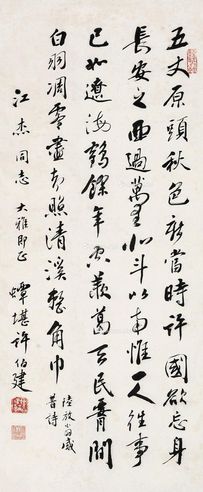 五丈原頭秋色新當時許國欲忘身
長安之西過萬里北斗以南惟一人往事
已如遼海鶴餘年空羨葛天民腰間
白羽凋零盡却照清溪整角巾
陸放翁感
昔詩
江杰同志大雅即正
蟫堪許伯建